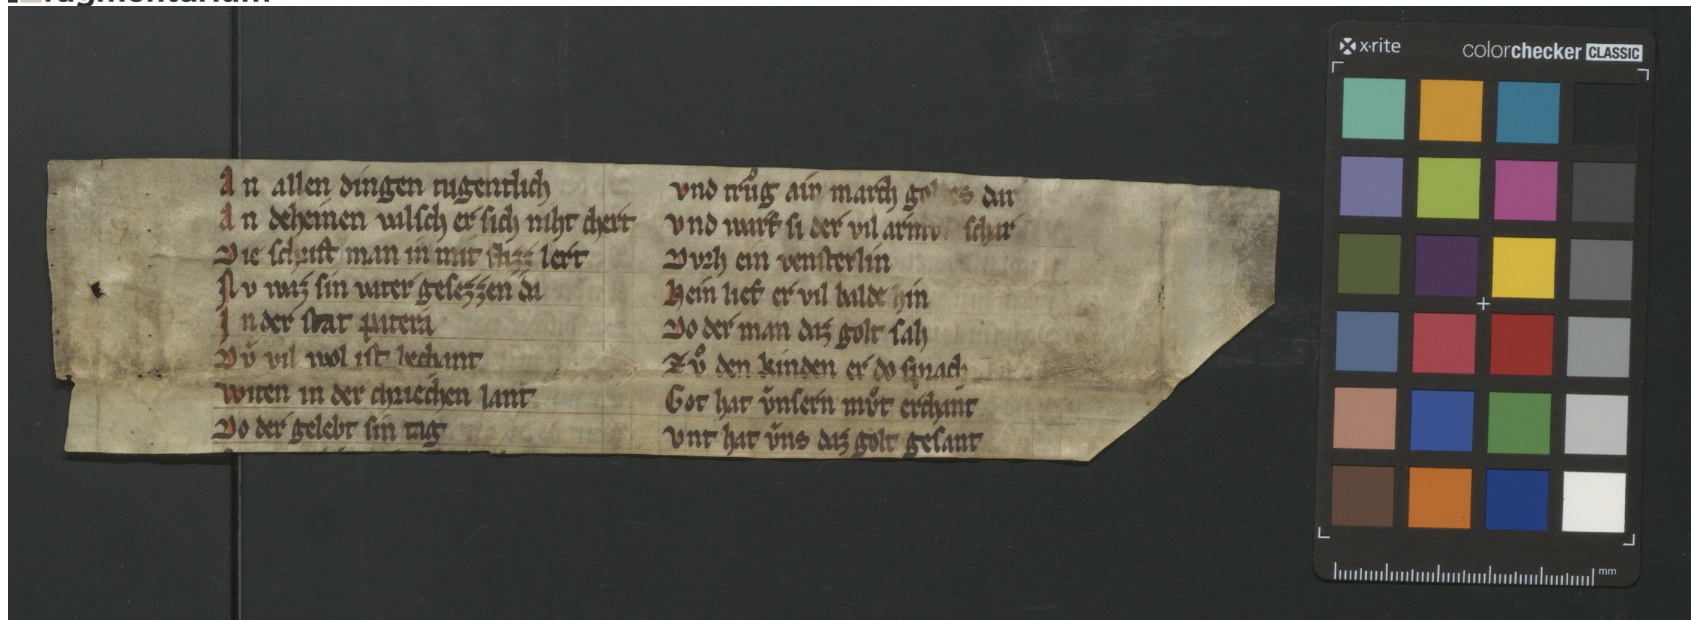 An allen dingen tugentlich
An deheinen valsch er sich niht chert
Die schrift man in mit flizz lert
Nv waz sin vater gesezzen da
In der stat patera
Dv̊ vil wol ist bechant
Witen in der chriechen lant
Do der gelebt sin tag
vnd trůg ain march goldes dar
vnd warf si der vil armen schar
Dvrh ein vensterlin
Hein lief er vil balde hin
Do der man daz golt sah
Zv̊ den kinden er do sprach
Got hat v̊nsern mv̊t erchant
vnt hat v̊ns daz golt gesant
x·rite
colorchecker CLASSIC
mm